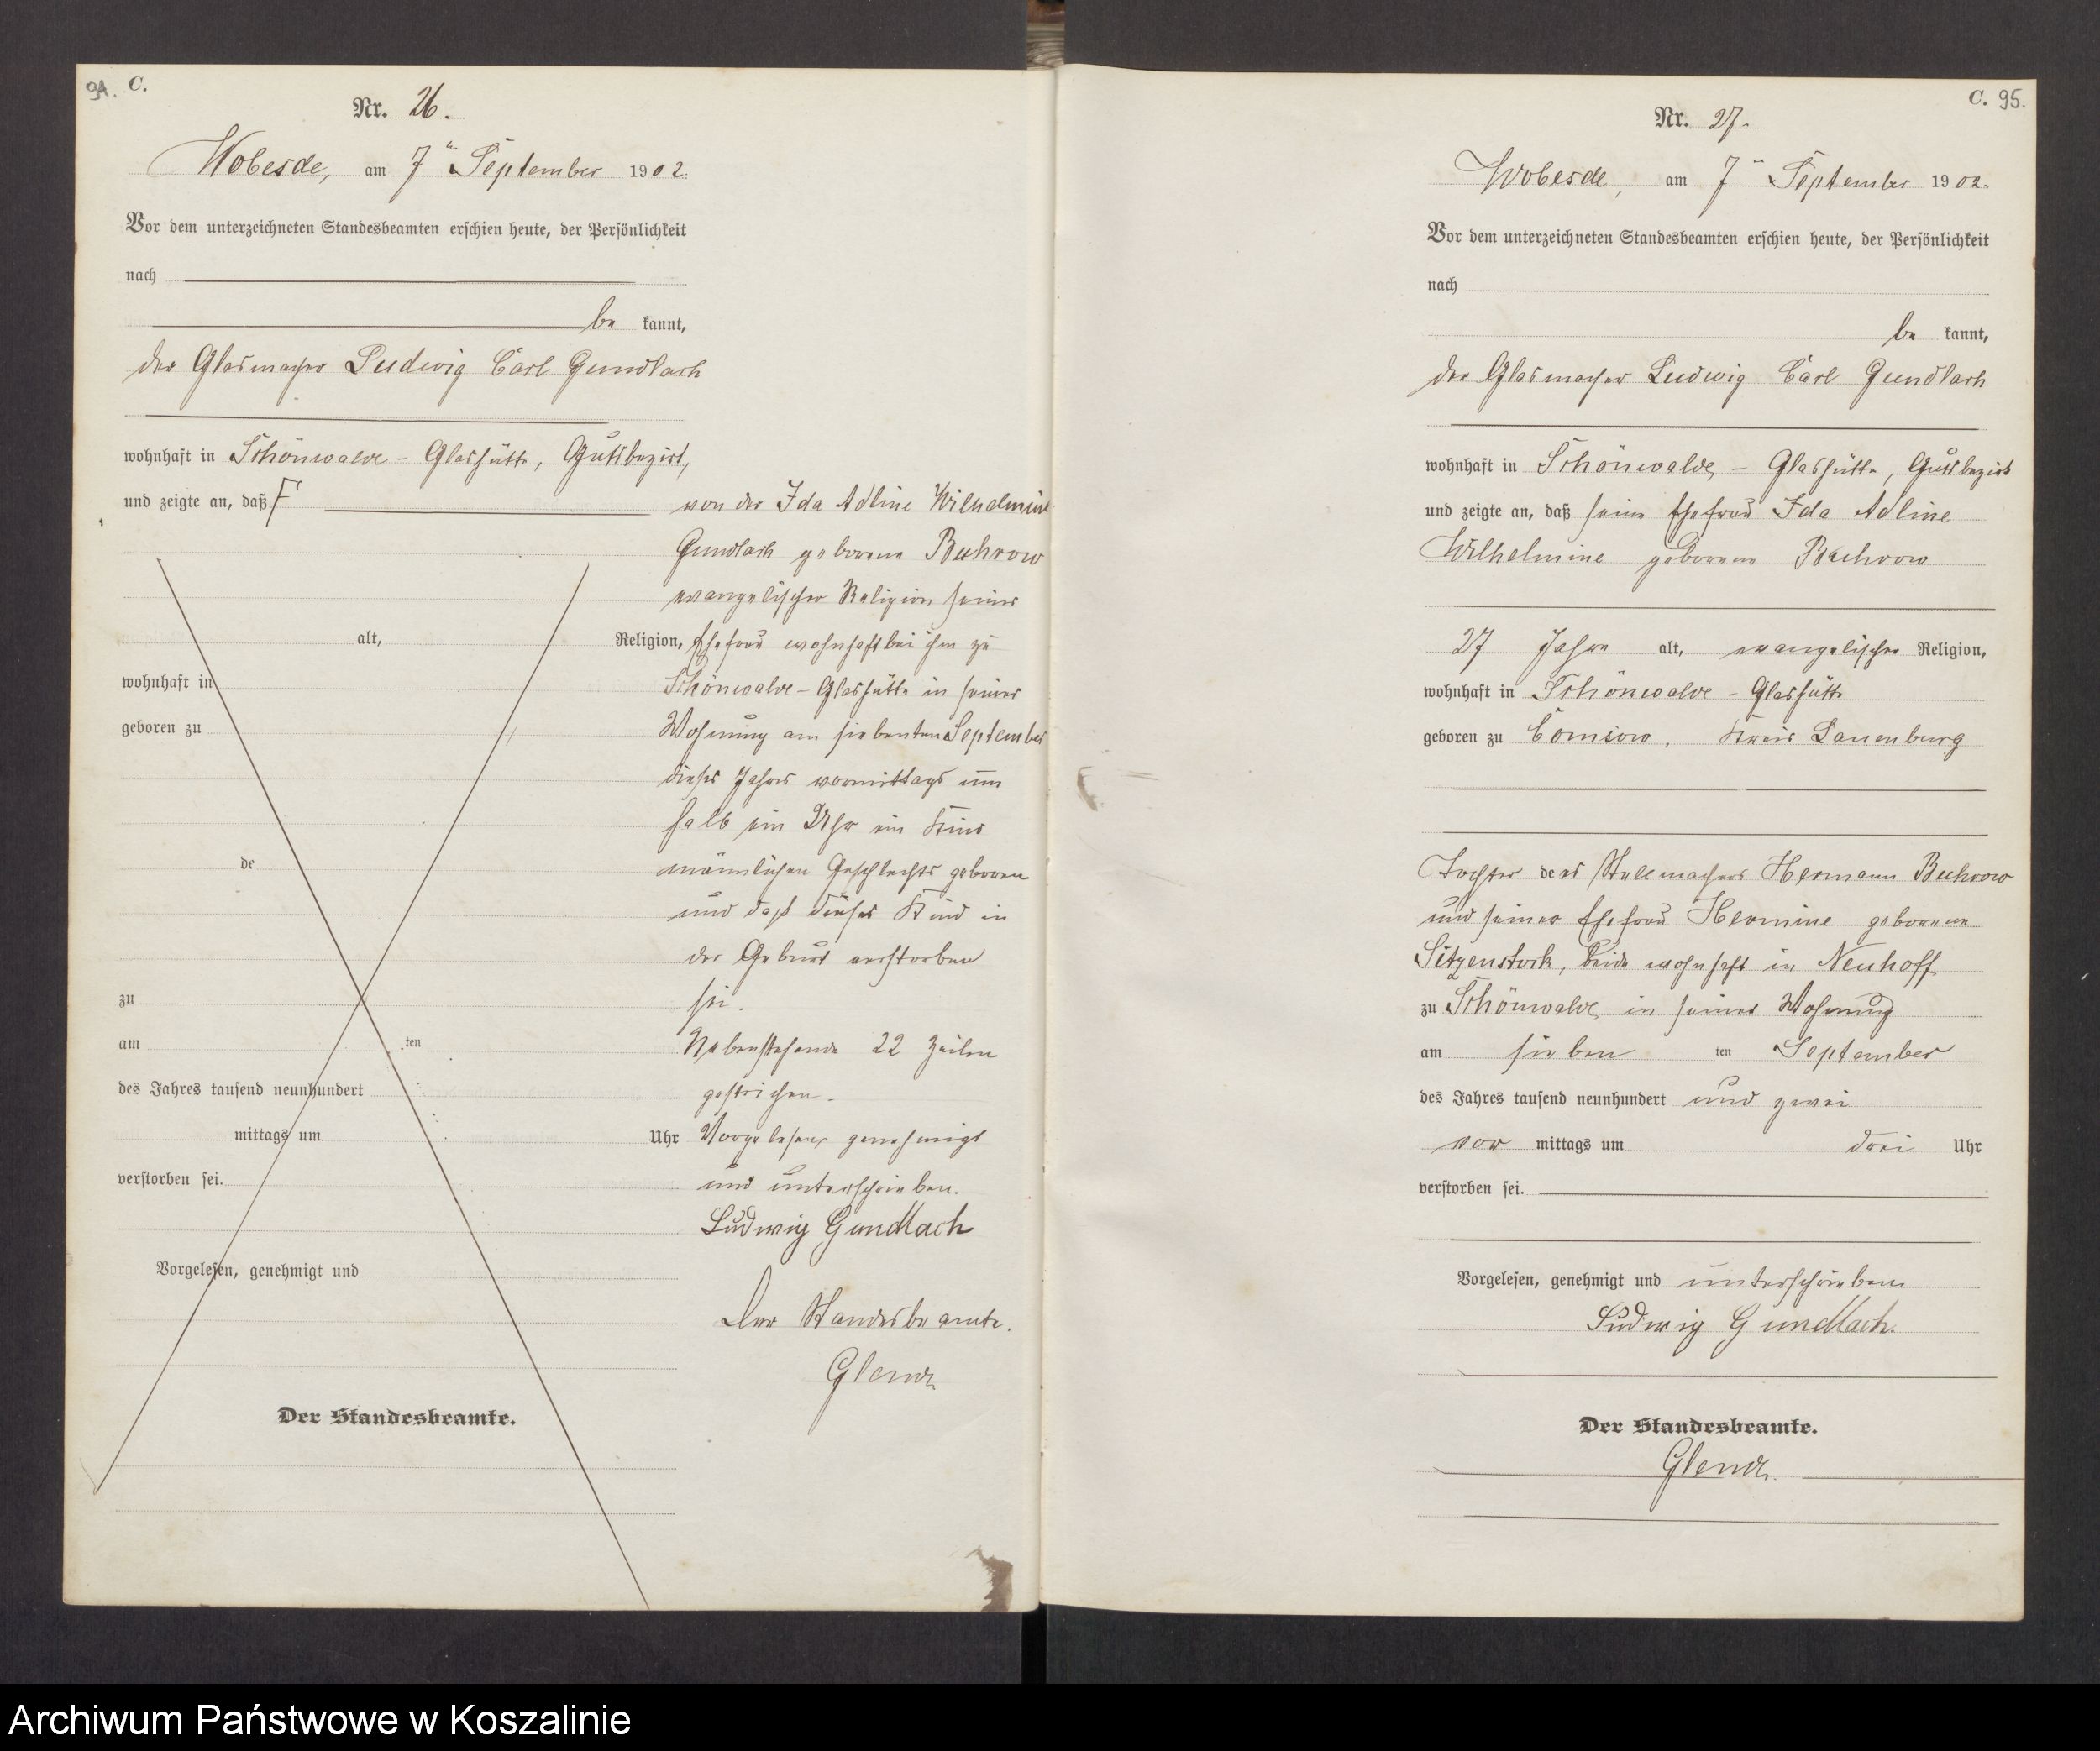 94. C.
Nr. 26.
Wobesde, am 7ten September 1902.
Vor dem unterzeichneten Standesbeamten erschien heute, der Persönlichkeit
nach
be kannt,
der Glasmacher Ludwig Carl Gundlach
wohnhaft in Schönwalde - Glashütte, Gutsbezirk,
und zeigte an, daß
von der Ida Adline Wilhelmine
Gundlach geborene Buhrow
evangelischer Religion seiner
alt, Religion, Ehefrau wohnhaft bei ihm zu
wohnhaft in Schönwalde - Glashütte in seiner
geboren zu Wohnung am siebenten September
dieses Jahres vormittags um
halb ein Uhr ein Kind
de männlichen Geschlechts geboren
und daß dieses Kind in
der Geburt verstorben
zu sei.
am ten Nebenstehende 22 Zeilen
des Jahres tausend neunhundert gestrichen.
mittags um Uhr Vorgelesen, genehmigt
verstorben sei. und unterschrieben.
Ludwig Gundlach
Vorgelesen, genehmigt und
Der Standesbeamte.
Der Standesbeamte.
C. 95.
Nr. 27.
Wobesde, am 7ten September 1902.
Vor dem unterzeichneten Standesbeamten erschien heute, der Persönlichkeit
nach
be kannt,
der Glasmacher Ludwig Carl Gundlach
wohnhaft in Schönwalde - Glashütte, Gutsbezirk
und zeigte an, daß seine Ehefrau Ida Adline
Wilhelmine geborene Buhrow
27 Jahre alt, evangelischer Religion,
wohnhaft in Schönwalde - Glashütte
geboren zu Comsow, Kreis Lauenburg
Tochter des Stellmachers Hermann Buhrow
und seiner Ehefrau Hermine geborene
Sitzenstock, beide wohnhaft in Neuhoff
zu Schönwalde, in seiner Wohnung
am sieben ten September
des Jahres tausend neunhundert und zwei
vor mittags um drei Uhr
verstorben sei.
Vorgelesen, genehmigt und unterschrieben
Ludwig Gundlach.
Der Standesbeamte.
Archiwum Państwowe w Koszalinie